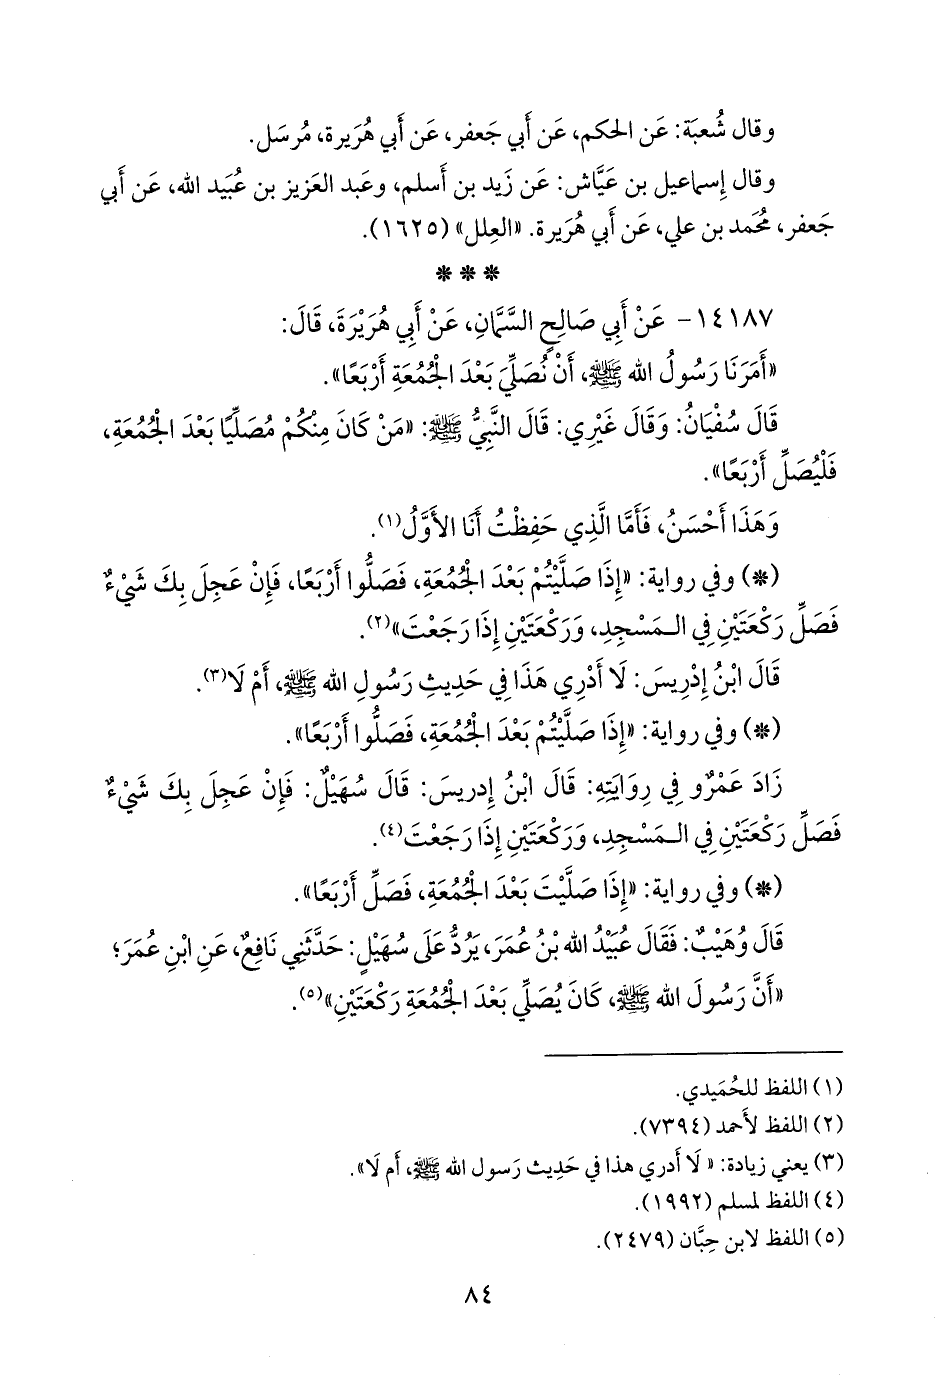 وقال شُعبَة: عَن الحكم، عَن أَبي جَعفر، عَن أَبي هُرَيرة، مُرسَل.
وقال إِسماعيل بن عَيَّاش: عَن زَيد بن أَسلم، وعَبد العَزيز بن عُبَيد الله، عَن أَبي
جَعفر، مُحَمد بن علي، عَن أَبي هُرَيرة. «العِلل» (١٦٢٥).
* * *
١٤١٨٧- عَنْ أَبِي صَالِحٍ السَّمَّانِ، عَنْ أَبِي هُرَيْرَةَ، قَالَ:
«أَمَرَنَا رَسُولُ الله ﷺ، أَنْ نُصَلِّيَ بَعْدَ الْجُمُعَةِ أَرْبَعًا».
قَالَ سُفْيَانُ: وَقَالَ غَيْرِي: قَالَ النَّبِيُّ ﷺ: «مَنْ كَانَ مِنْكُمْ مُصَلِّيًا بَعْدَ الْجُمُعَةِ،
فَلْيُصَلِّ أَرْبَعًا».
وَهَذَا أَحْسَنُ، فَأَمَّا الَّذِي حَفِظْتُ أَنَا الأَوَّلُ(١).
(*) وفي رواية: «إِذَا صَلَّيْتُمْ بَعْدَ الْجُمُعَةِ، فَصَلُّوا أَرْبَعًا، فَإِنْ عَجِلَ بِكَ شَيْءٌ
فَصَلِّ رَكْعَتَيْنِ فِي الـمَسْجِدِ، وَرَكْعَتَيْنِ إِذَا رَجَعْتَ»(٢).
قَالَ ابْنُ إِدْرِيسَ: لَا أَدْرِي هَذَا فِي حَدِيثِ رَسُولِ الله ﷺ، أَمْ لَا(٣).
(*) وفي رواية: «إِذَا صَلَّيْتُمْ بَعْدَ الْجُمُعَةِ، فَصَلُّوا أَرْبَعًا».
زَادَ عَمْرٌو فِي رِوَايَتِهِ: قَالَ ابْنُ إِدريسَ: قَالَ سُهَيْلٌ: فَإِنْ عَجِلَ بِكَ شَيْءٌ
فَصَلِّ رَكْعَتَيْنِ فِي الـمَسْجِدِ، وَرَكْعَتَيْنِ إِذَا رَجَعْتَ(٤).
(*) وفي رواية: «إِذَا صَلَّيْتَ بَعْدَ الْجُمُعَةِ، فَصَلِّ أَرْبَعًا».
قَالَ وُهَيْبٌ: فَقَالَ عُبَيْدُ الله بْنُ عُمَرَ، يَرُدُّ عَلَى سُهَيْلٍ: حَدَّثَنِي نَافِعٌ، عَنِ ابْنِ عُمَرَ؛
«أَنَّ رَسُولَ الله ﷺ، كَانَ يُصَلِّي بَعْدَ الْجُمُعَةِ رَكْعَتَيْنِ»(٥).
(١) اللفظ للحُمَيدي.
(٢) اللفظ لأَحمد (٧٣٩٤).
(٣) يعني زيادة: «لَا أَدري هذا في حَدِيث رَسول الله ﷺ، أَم لَا».
(٤) اللفظ لمسلم (١٩٩٢).
(٥) اللفظ لابن حِبَّان (٢٤٧٩).
٨٤